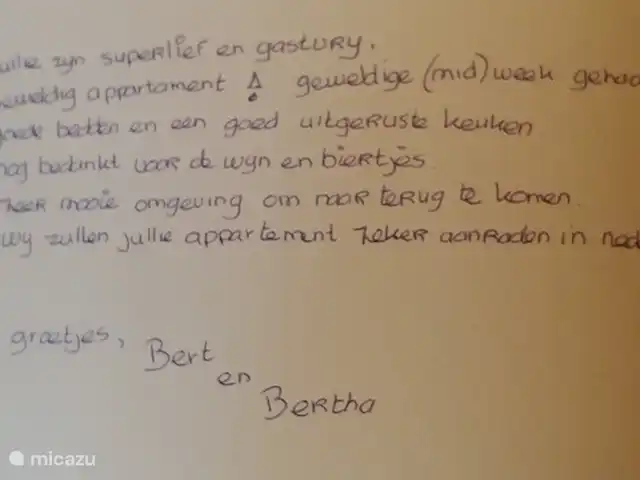 jullie zyn superlief en gastvry.
geweldig appartament ! geweldige (mid)week gehad
goede bedden en een goed uitgeruste keuken
nog bedankt voor de wyn en biertjes
zeer mooie omgeving om naar terug te komen.
wy zullen jullie appartement zeker aanraden in ned
groetjes,
Bert
en
Bertha
micazu